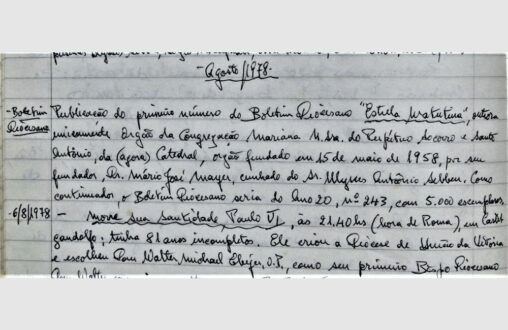 -Agosto/1978-
-Boletim Diocesano
Publicação do primeiro número do Boletim Diocesano "Estrela Matutina", outrora
unicamente órgão da Congregação Mariana N. Sra. do Perpétuo Socorro e Santo
Antônio, da (agora) Catedral, órgão fundado em 15 de maio de 1958, por seu
fundador, Dr. Mário José Mayer, cunhado do Sr. Ulysses Antônio Sebben. Como
continuador, o Boletim Diocesano seria do Ano 20, nº 243, com 5.000 exemplares.
-6/8/1978 — Morre Sua Santidade, Paulo VI, às 21.40hs (hora de Roma), em Castel
gandolfo; tinha 81 anos incompletos. Ele criou a Diocese de União da Vitória
e escolheu Dom Walter Michael Ebejer, O.P., como seu primeiro Bispo Diocesano
Dom Walter